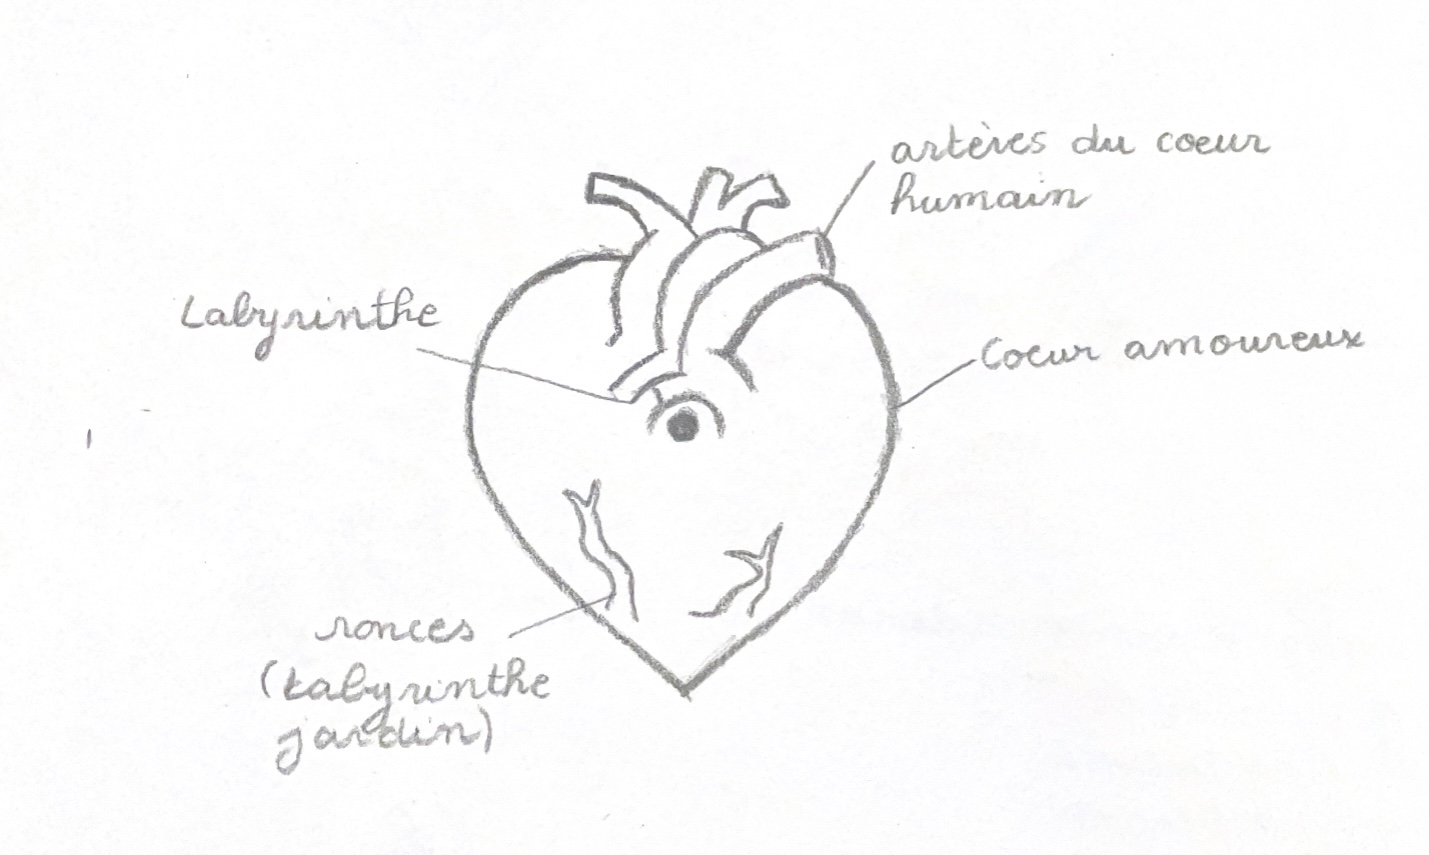 artères du coeur
humain
Labyrinthe
Coeur amoureux
ronces
(Labyrinthe
jardin)